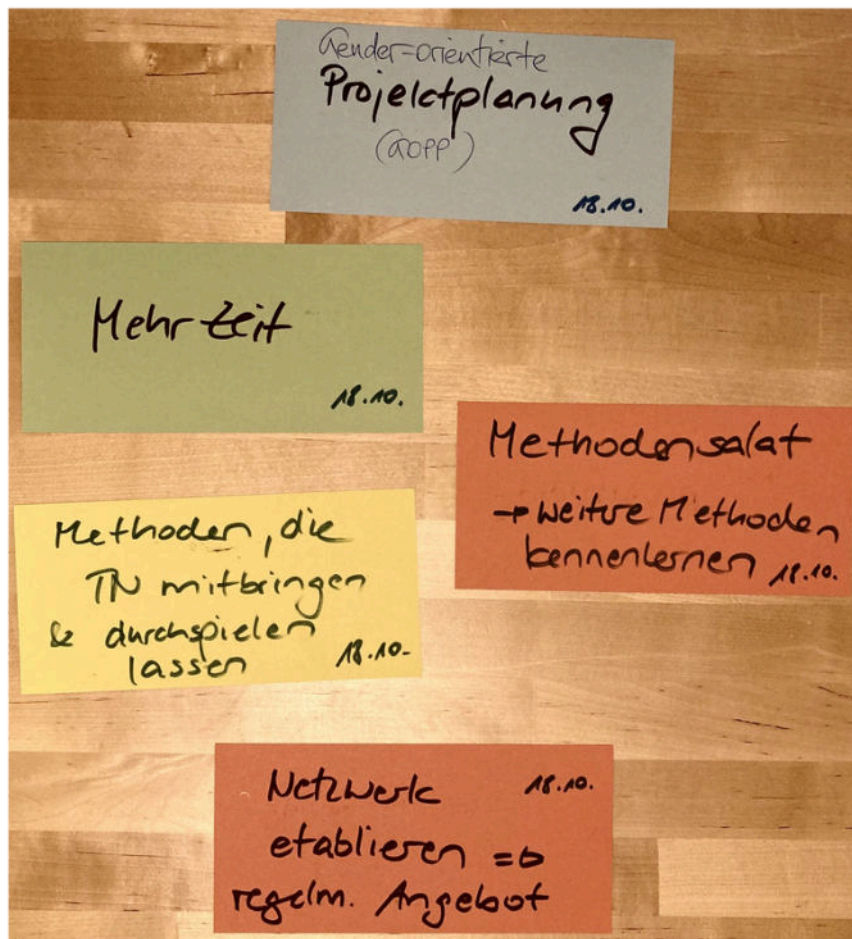 Gender=orientierte
Projektplanung
(GOPP)
18.10.
Mehr Zeit
18.10.
Methodensalat
→ weitere Methoden
kennenlernen 18.10.
Methoden, die
TN mitbringen
& durchspielen
lassen 18.10.
Netzwerk 18.10.
etablieren =>
regelm. Angebot